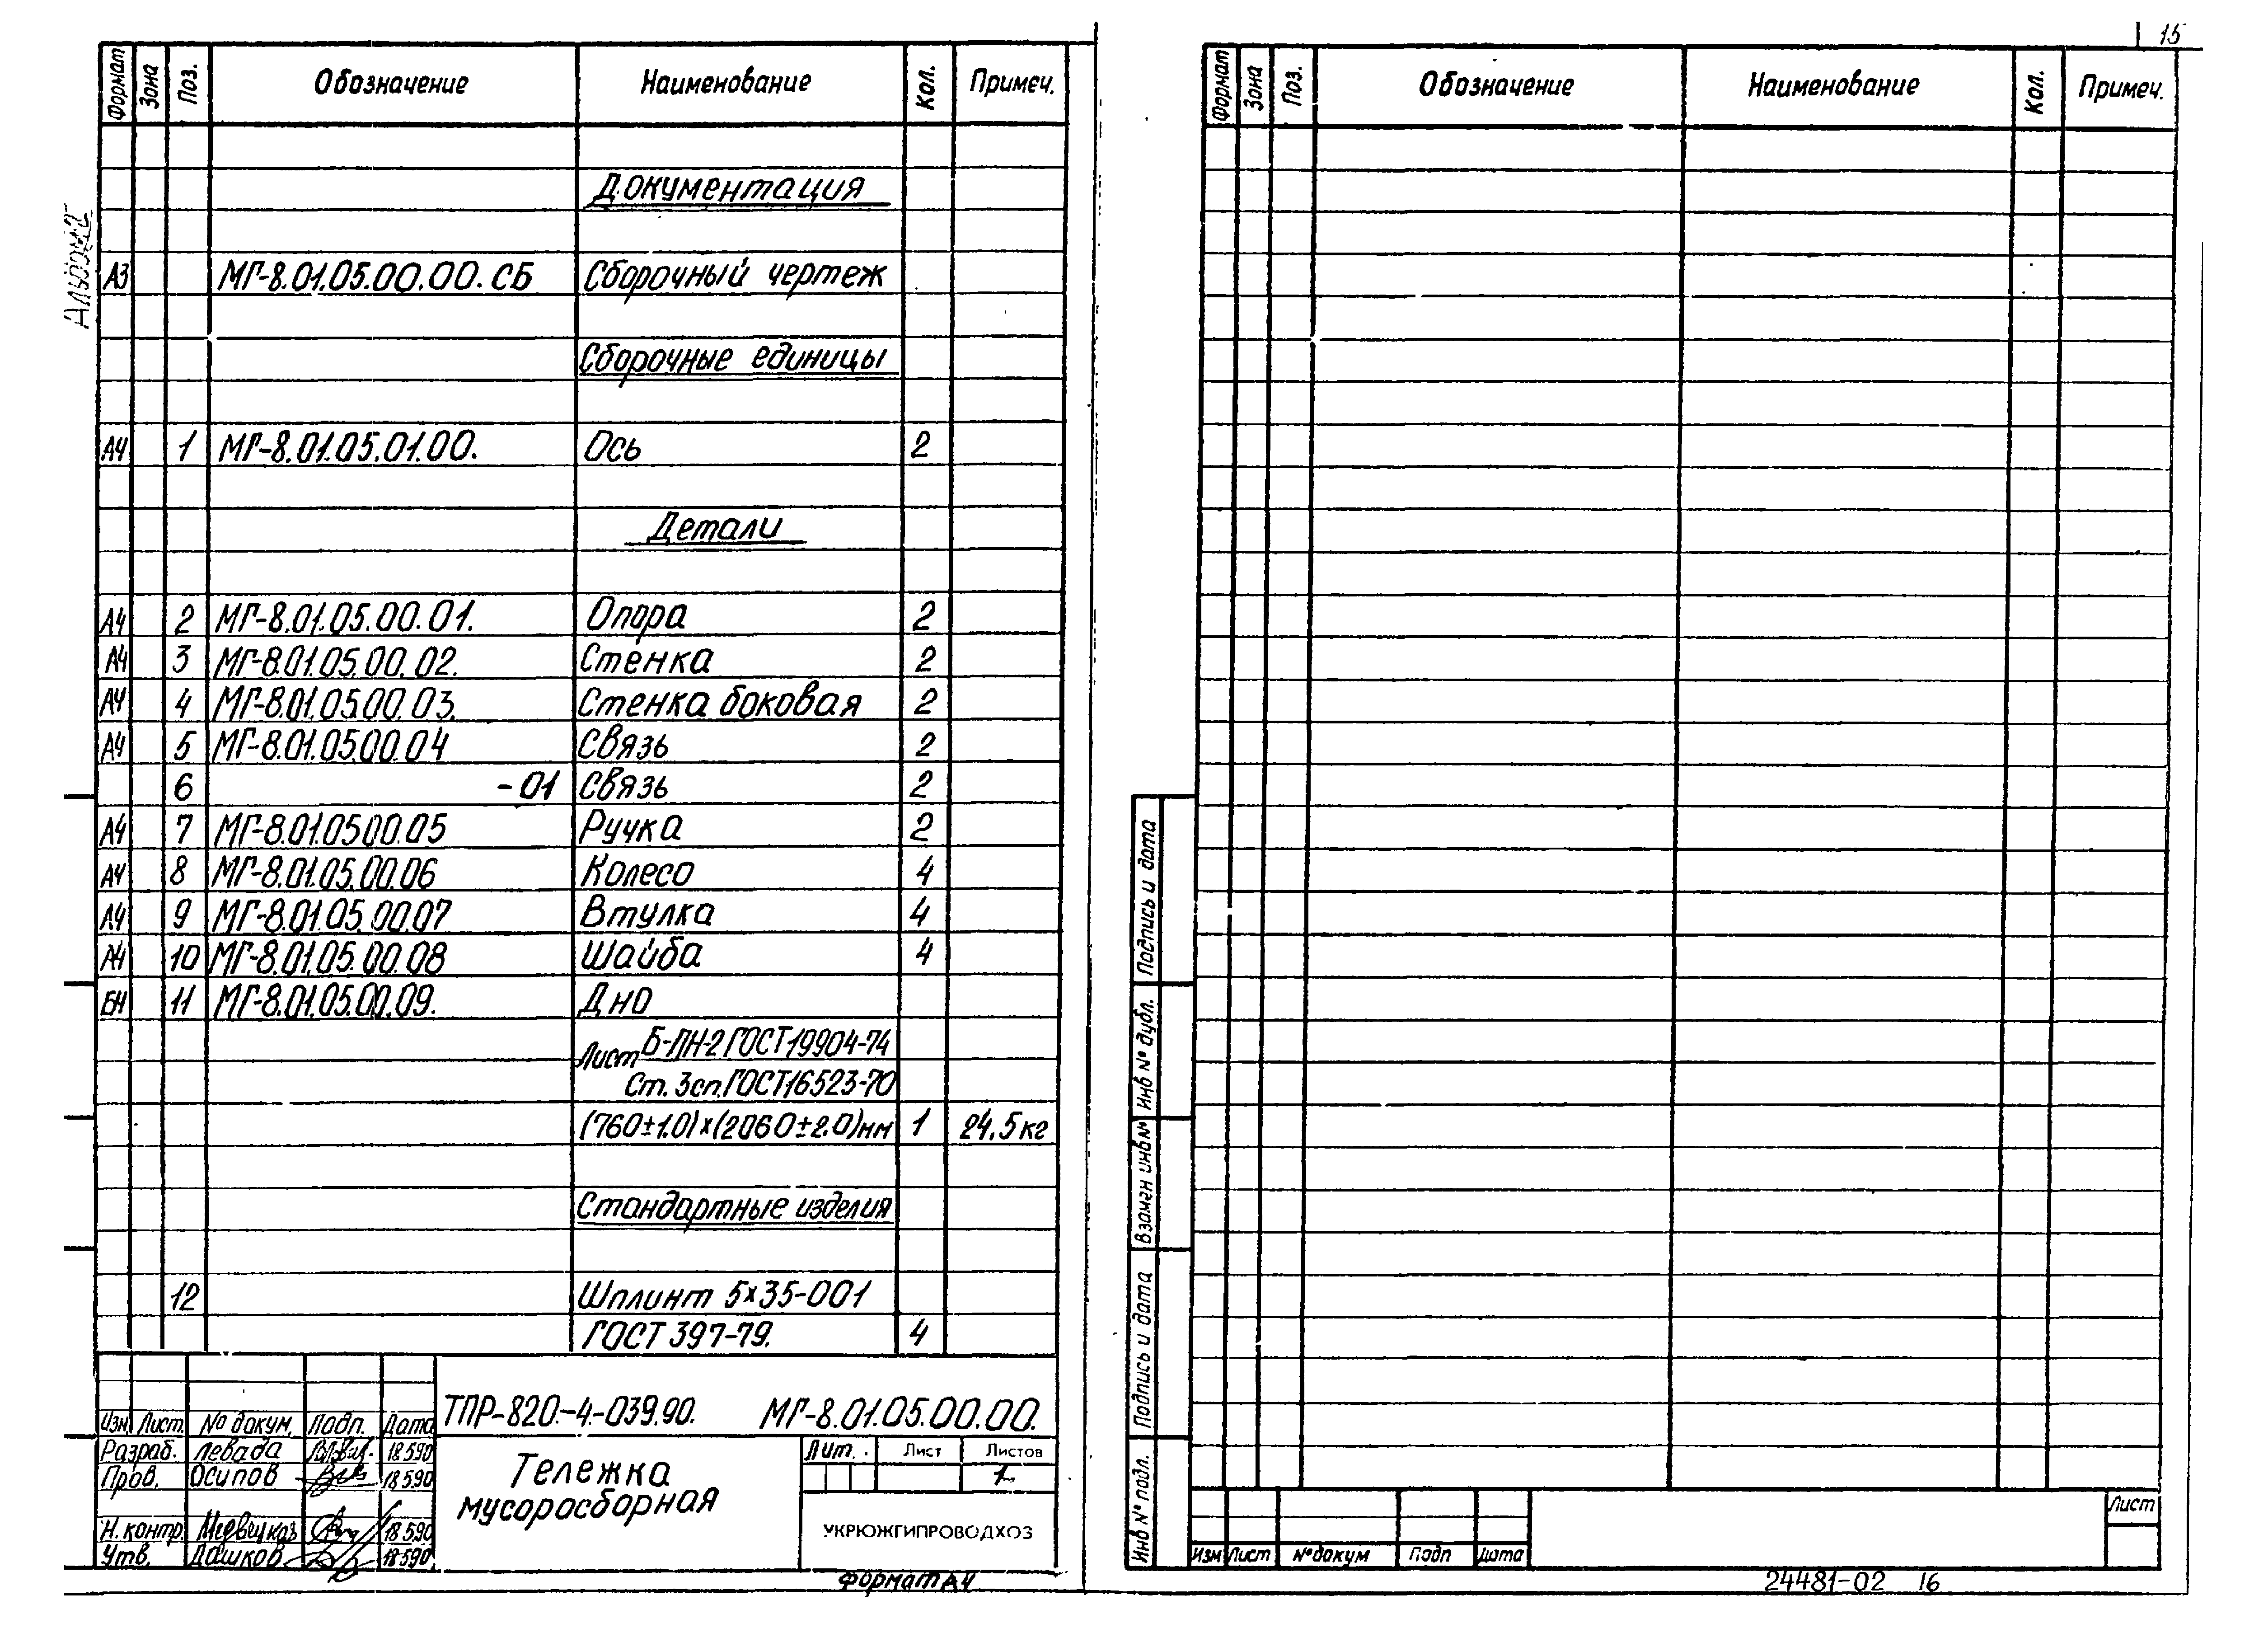 15
Альбом 2
Формат Зона Поз. Обозначение Наименование Кол. Примеч.
Документация
А3 МГ-8.01.05.00.00.СБ Сборочный чертеж
Сборочные единицы
А4 1 МГ-8.01.05.01.00. Ось 2
Детали
А4 2 МГ-8.01.05.00.01. Опора 2
А4 3 МГ-8.01.05.00.02. Стенка 2
А4 4 МГ-8.01.05.00.03. Стенка боковая 2
А4 5 МГ-8.01.05.00.04 Связь 2
6 -01 Связь 2
А4 7 МГ-8.01.05.00.05 Ручка 2
А4 8 МГ-8.01.05.00.06 Колесо 4
А4 9 МГ-8.01.05.00.07 Втулка 4
А4 10 МГ-8.01.05.00.08 Шайба 4
БЧ 11 МГ-8.01.05.00.09. Дно
Лист Б-ПН-2 ГОСТ 19904-74
Ст.3сп.ГОСТ16523-70
(760±1.0)×(2060±2.0)мм 1 24.5кг
Стандартные изделия
12 Шплинт 5×35-001
ГОСТ 397-79. 4
ТПР-820.-4-039.90. МГ-8.01.05.00.00.
Изм. Лист. № докум. Подп. Дата
Разраб. Левада 18.5.90
Пров. Осипов 18.5.90
Н.контр. 18.5.90
Утв. Дашков 18.5.90
Тележка
мусоросборная
Лит. Лист Листов
1
УКРЮЖГИПРОВОДХОЗ
Формат А4
Формат Зона Поз. Обозначение Наименование Кол. Примеч.
Подпись и дата
Инв № дубл.
Взамен инв №
Подпись и дата
Инв № подл.
Изм Лист № докум Подп Дата
Лист
24481-02 16